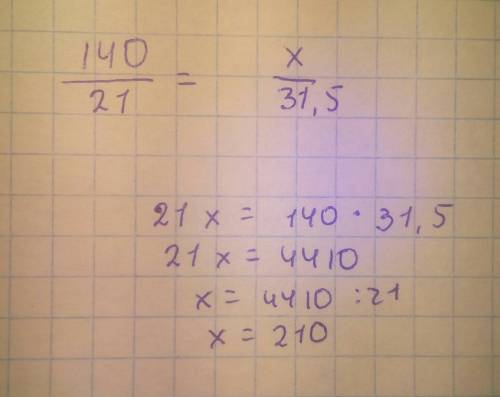 140/21 = x/31,5
21 x = 140 · 31,5
21 x = 4410
x = 4410 : 21
x = 210